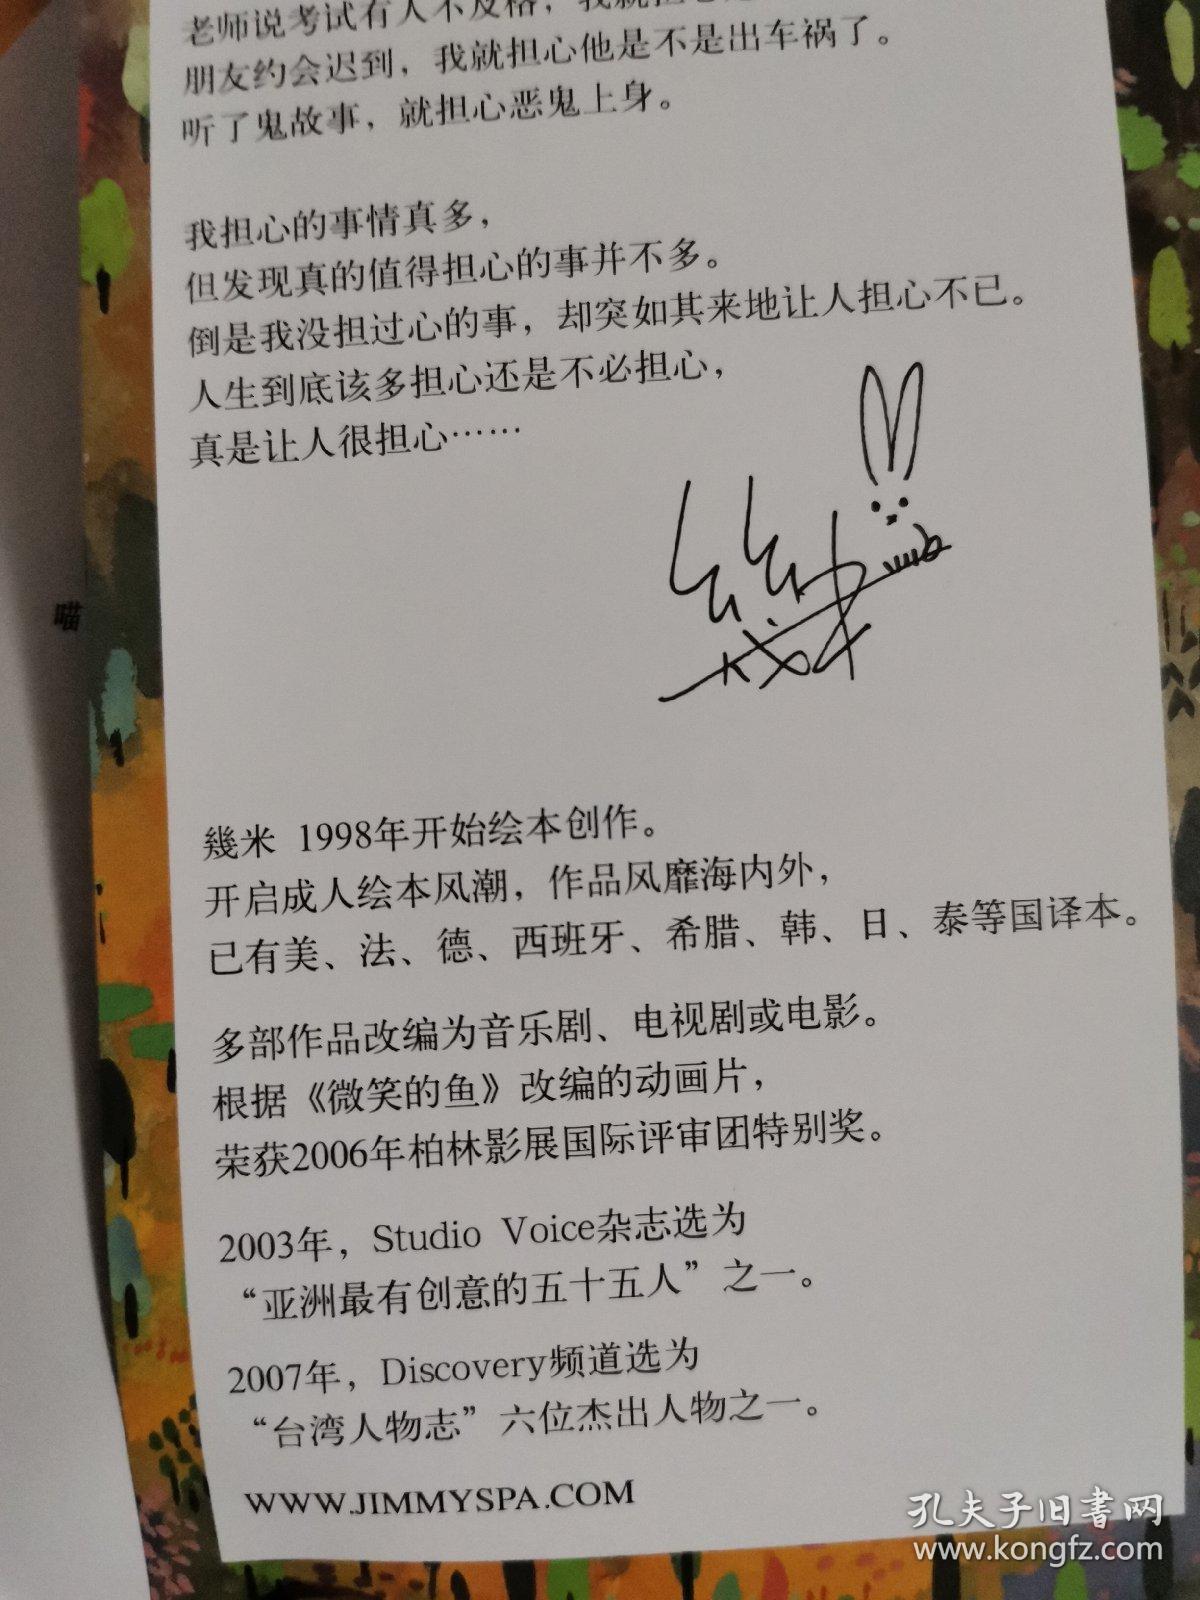 老师说考试有人不及格，我就担心是
朋友约会迟到，我就担心他是不是出车祸了。
听了鬼故事，就担心恶鬼上身。
我担心的事情真多，
但发现真的值得担心的事并不多。
倒是我没担过心的事，却突如其来地让人担心不已。
人生到底该多担心还是不必担心，
真是让人很担心……
喵
幾米
幾米 1998年开始绘本创作。
开启成人绘本风潮，作品风靡海内外，
已有美、法、德、西班牙、希腊、韩、日、泰等国译本。
多部作品改编为音乐剧、电视剧或电影。
根据《微笑的鱼》改编的动画片，
荣获2006年柏林影展国际评审团特别奖。
2003年，Studio Voice杂志选为
“亚洲最有创意的五十五人”之一。
2007年，Discovery频道选为
“台湾人物志”六位杰出人物之一。
WWW.JIMMYSPA.COM
孔夫子旧书网
www.kongfz.com